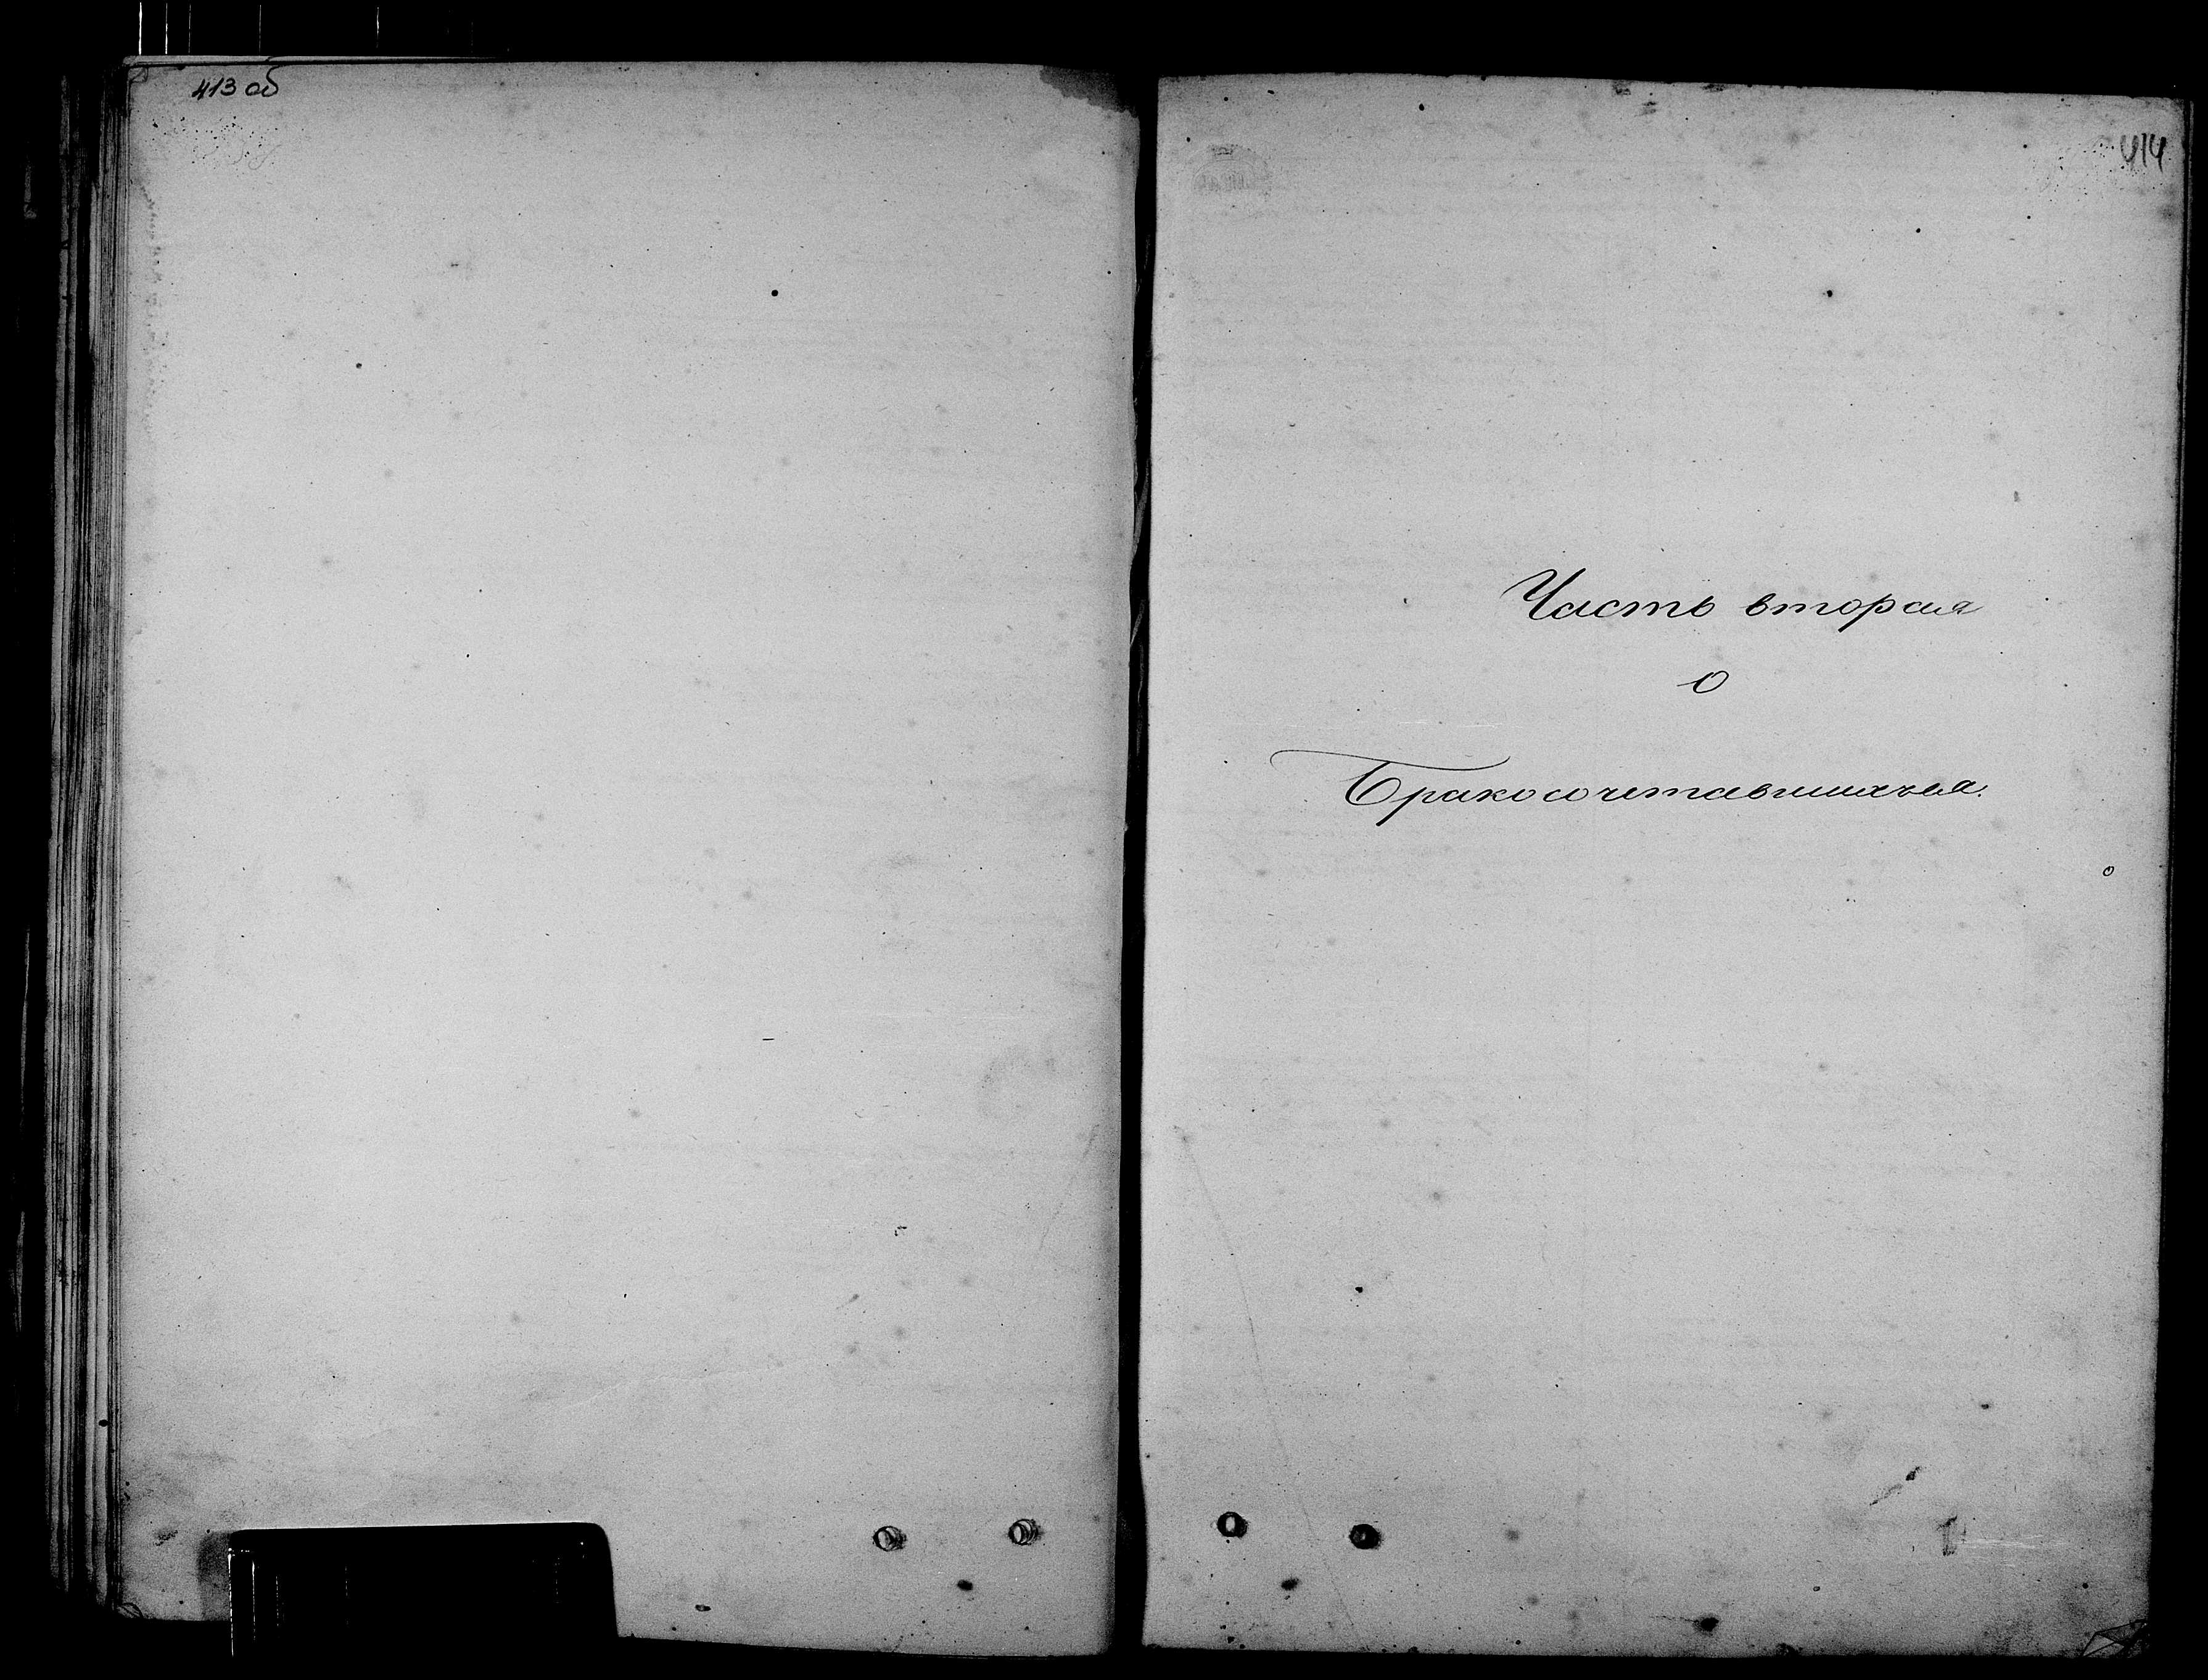 413 об
414
Часть вторая
о
Бракосочетавшихся.